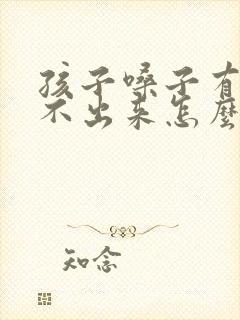 孩子嗓子有
不出来怎麼
知念